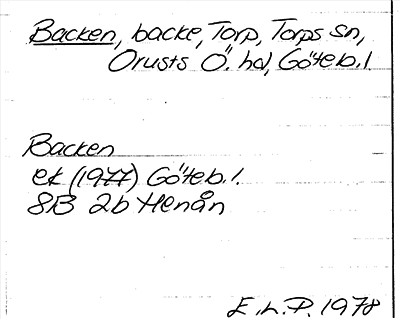 Backen, backe, Torp, Torps sn,
Orusts Ö. hd, Göteb. l.
Backen
ek (1977) Göteb. l.
8B 2b Henån
E.L.P. 1978